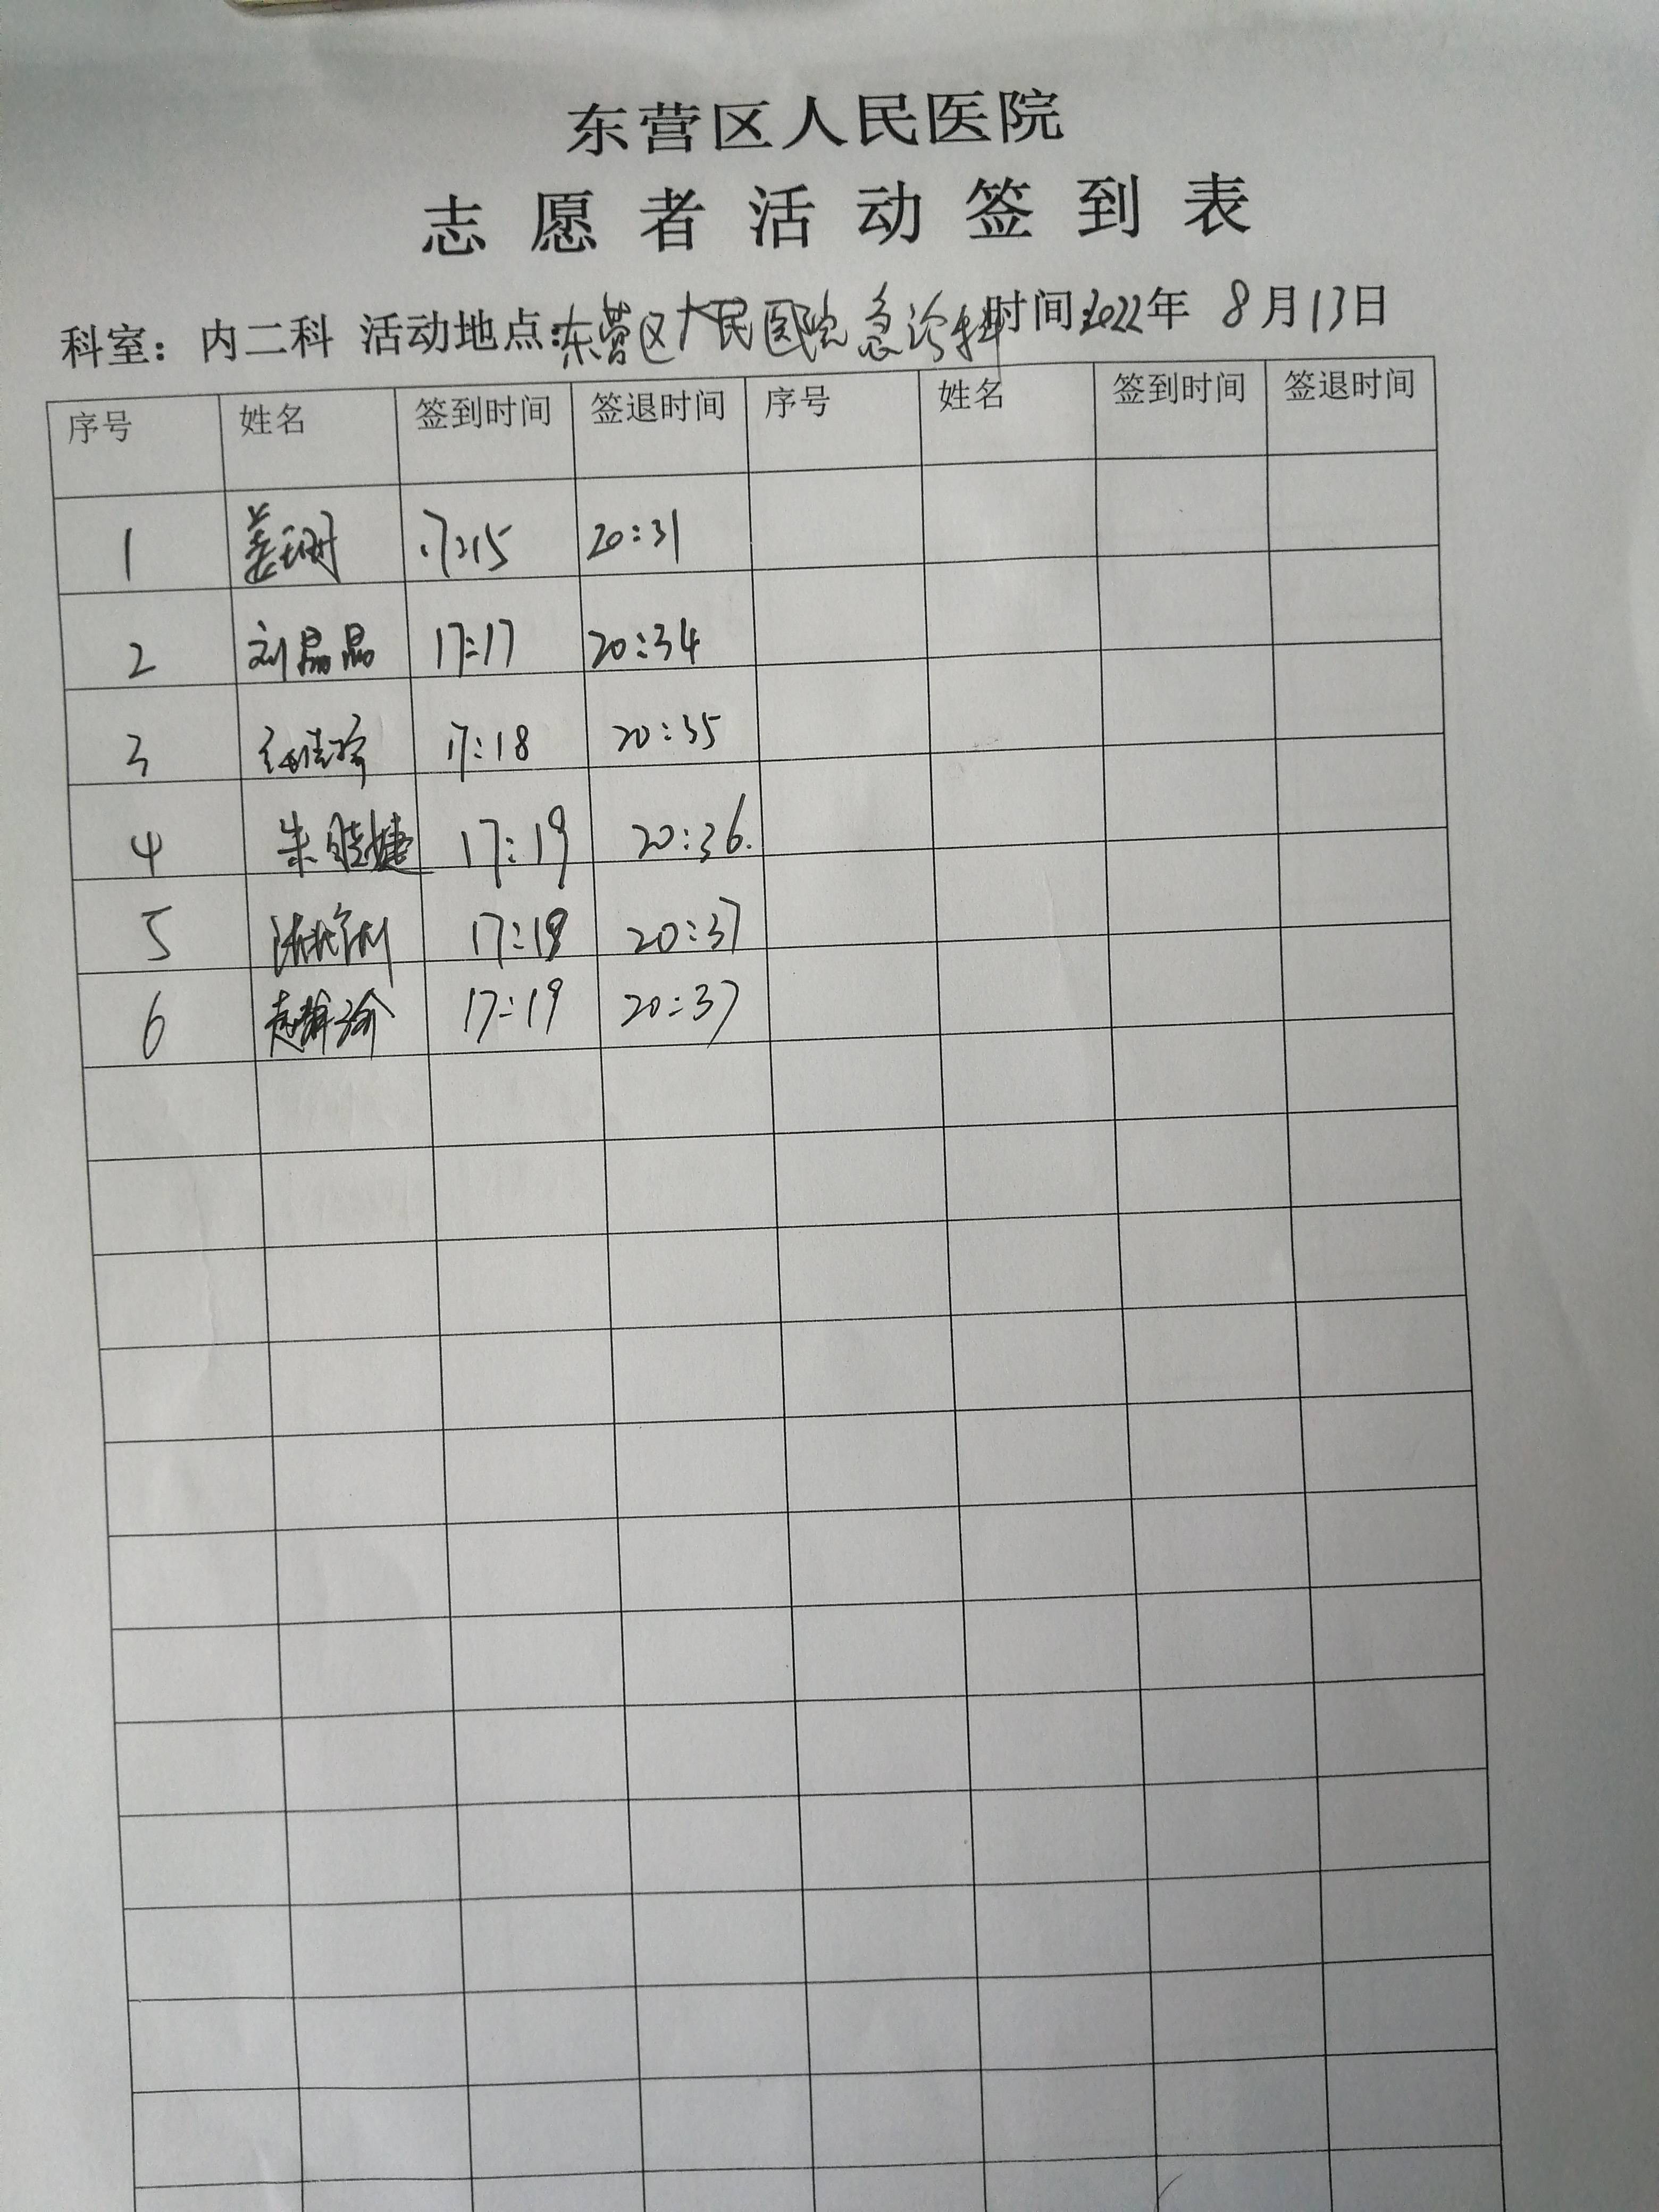 东营区人民医院
志愿者活动签到表
科室：内二科 活动地点:东营区人民医院急诊科时间2022年 8月13日
序号 姓名 签到时间 签退时间 序号 姓名 签到时间 签退时间
1 姜珊 17:15 20:31
2 刘晶晶 17:17 20:34
3 17:18 20:35
4 朱 17:19 20:36.
5 17:19 20:37
6 赵静瑜 17:19 20:37